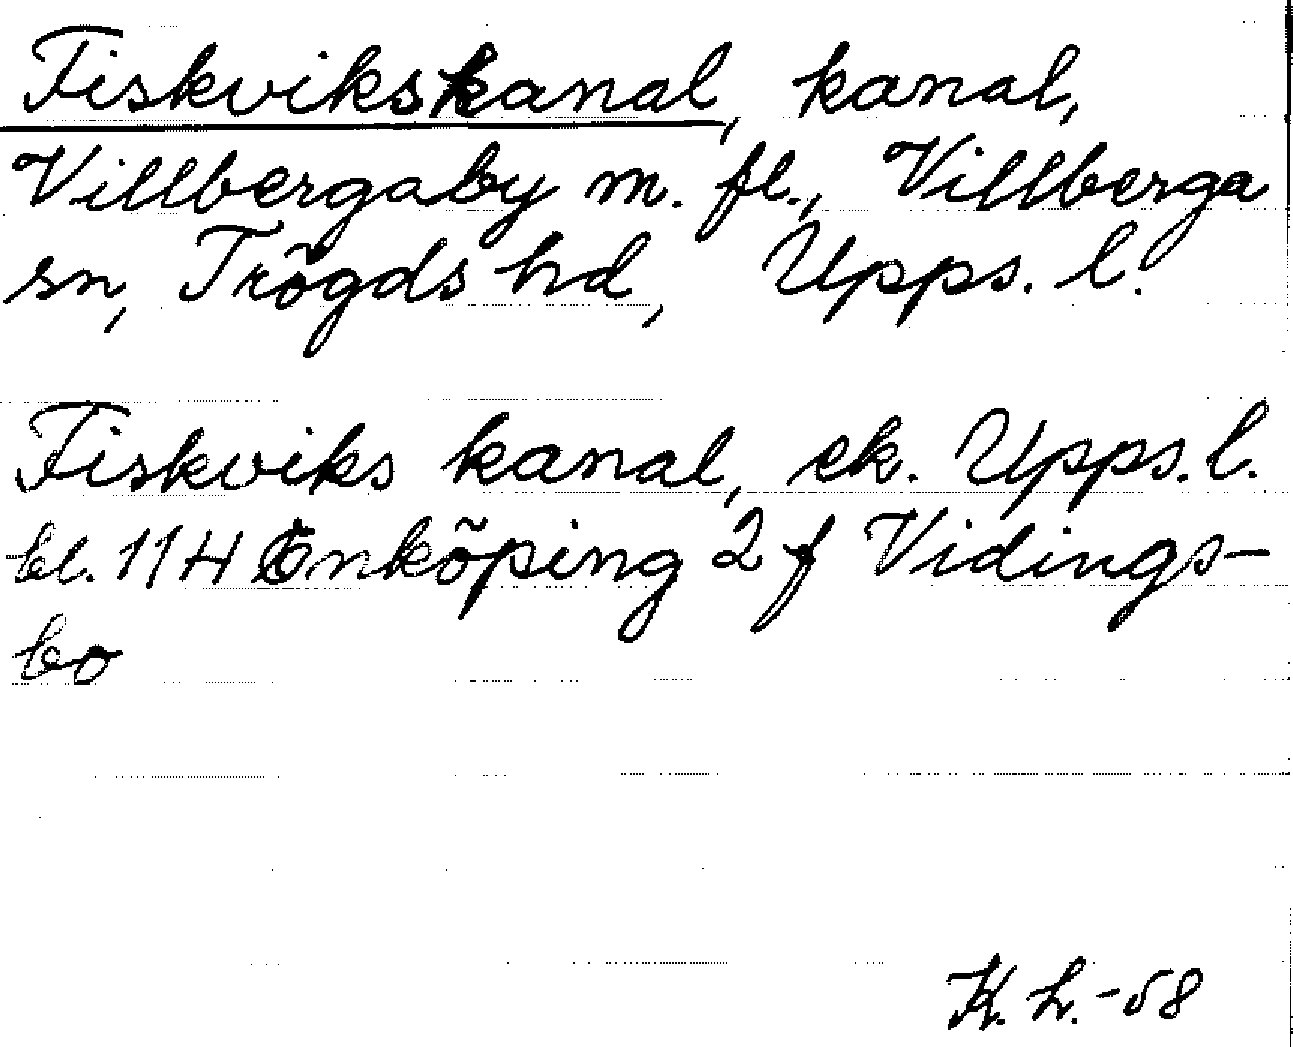 Fiskvikskanal, kanal,
Villbergaby m. fl., Villberga
sn, Trögds hd, Upps. l.
Fiskviks kanal, ek. Upps. l.
bl. 11H Enköping 2 f Vidings-
bo
K. L. -58